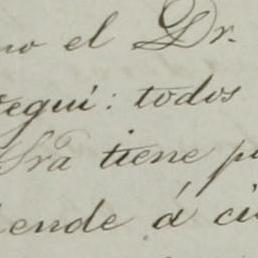 no el Dr.
tegui: todos
Sra tiene p
ende á ci